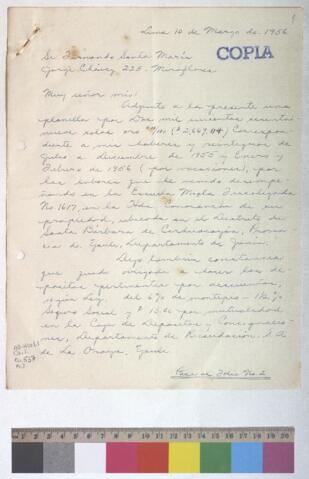 Lima 10 de Marzo de 1956
COPIA
Sr Fernando Santa María
Jorge Chávez 225. Miraflores
Muy señor mío:
Adjunto a la presente una
planilla por Dos mil seiscientos sesenta
nueve soles oro ($ 2,669.04) correspon-
diente a mis haberes y reintegros de
Julio a diciembre de 1955 y Enero y
Febrero de 1956 (por vacaciones), por
las labores que he venido desempe-
ñando en la Escuela Mixta
No 1617, en la Hda de su
propiedad, ubicada en el Distrito de
Santa Bárbara de Carhuacayán, Provin-
cia de Yauli, Departamento de Junín.
Dejo también constancia
que quedo obligada a hacer los de-
pósitos pertinentes por descuentos,
según Ley. del 6% de montepío - 1½ %
Seguro Social y $ por mutualidad
en la Caja de Depósitos y Consignacio-
nes, Departamento de Recaudación. S.A
de La Oroya, Yauli
Pasa al folio No. 2
1 2 3 4 5 6 7 8 9 10 11 12 13 14 15 16 17 18 19 20